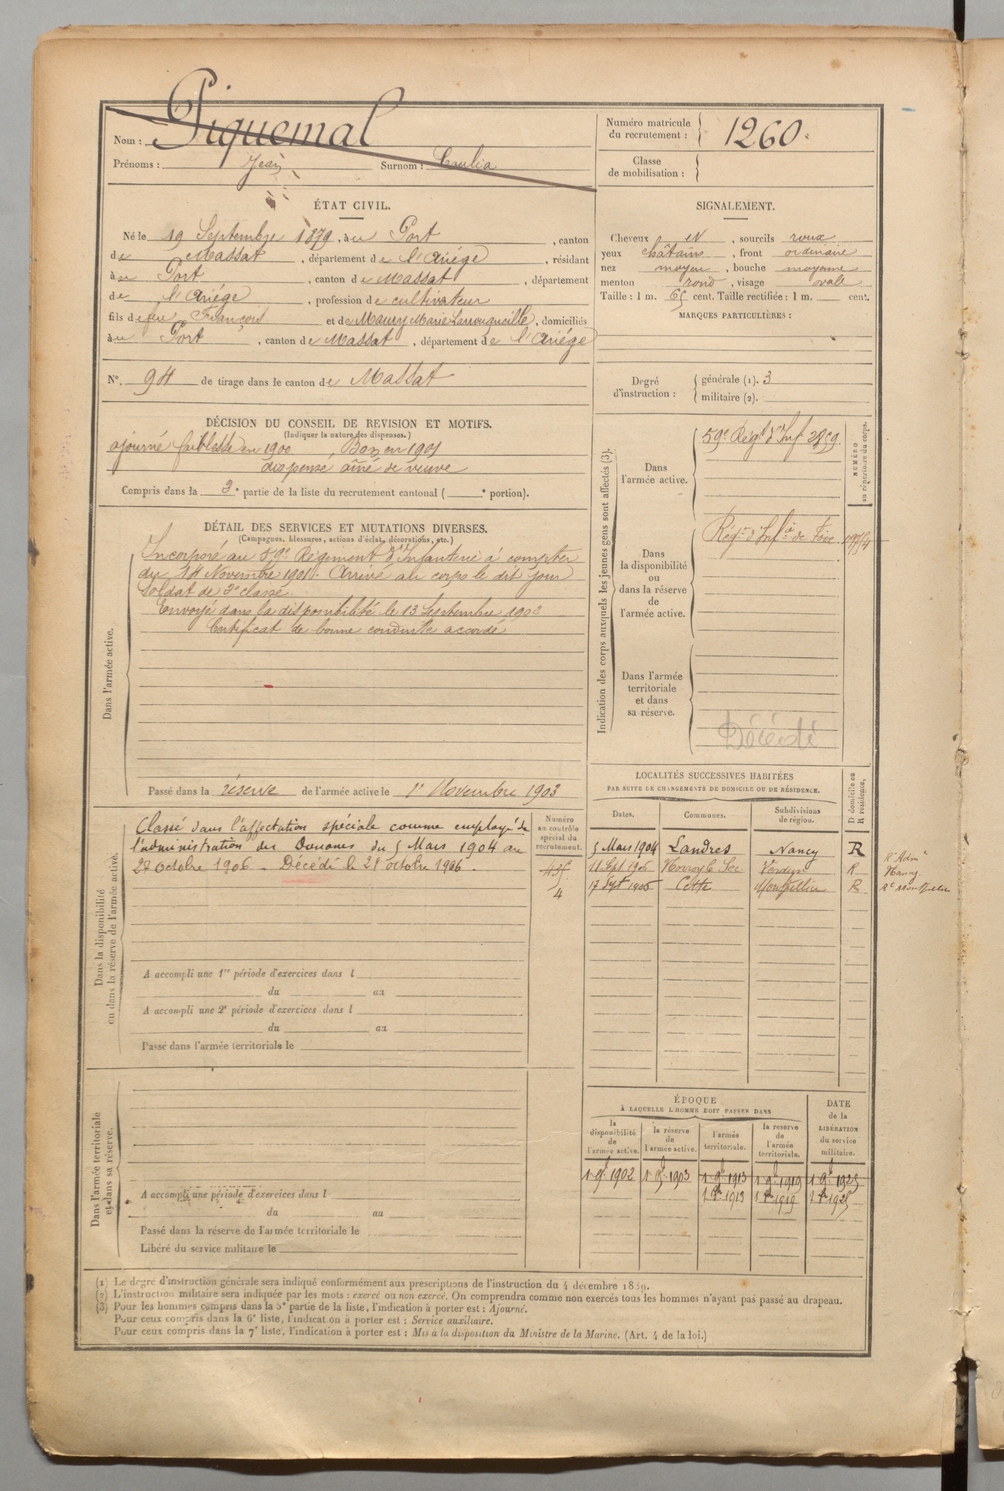 Nom : Piquemal
Prénoms : Jean Surnom : Caulia
Numéro matricule
du recrutement : 1260.
Classe
de mobilisation :
ÉTAT CIVIL.
Né le 19 Septembre 1879, à u Port, canton
de Massat, département de l'Ariège, résidant
à u Port, canton de Massat, département
de l'Ariège, profession de cultivateur
fils de feu François et de Maury Marie, domiciliés
à u Port, canton de Massat, département de l'Ariège
N°. 94 de tirage dans le canton de Massat
SIGNALEMENT.
Cheveux N, sourcils roux
yeux châtains, front ordinaire
nez moyen, bouche moyenne
menton rond, visage ovale
Taille : 1 m. 65 cent. Taille rectifiée : 1 m. cent.
MARQUES PARTICULIÈRES :
Degré
d'instruction :
générale (1). 3
militaire (2).
DÉCISION DU CONSEIL DE REVISION ET MOTIFS.
(Indiquer la nature des dispenses.)
ajourné faiblesse en 1900, Bon en 1901
dispensé aîné de veuve
Compris dans la 2e partie de la liste du recrutement cantonal ( e portion).
DÉTAIL DES SERVICES ET MUTATIONS DIVERSES.
(Campagnes, blessures, actions d'éclat, décorations, etc.)
Dans l'armée active.
Incorporé au 59e Régiment d'Infanterie à compter
du 14 Novembre 1901. Arrivé au corps le dit jour
soldat de 2e classe.
Envoyé dans la disponibilité le 13 Septembre 1902
Certificat de bonne conduite accordé
Passé dans la réserve de l'armée active le 1er Novembre 1903
Indication des corps auxquels les jeunes gens sont affectés (3).
NUMÉRO
au répertoire du corps.
Dans
l'armée active.
59e Régt d'Inf 2859.
Dans
la disponibilité
ou
dans la réserve
de
l'armée active.
Régt d'Infie de Foix
Dans l'armée
territoriale
et dans
sa réserve.
Décédé
Dans la disponibilité
ou dans la réserve de l'armée active.
Classé dans l'affectation spéciale comme employé de
l'administration des Douanes du 5 Mars 1904 au
22 octobre 1906 - Décédé le 21 octobre 1906 -
Numéro
au contrôle
spécial du
recrutement.
4
A accompli une 1re période d'exercices dans l
du au
A accompli une 2e période d'exercices dans l
du au
Passé dans l'armée territoriale le
LOCALITÉS SUCCESSIVES HABITÉES
PAR SUITE DE CHANGEMENTS DE DOMICILE OU DE RÉSIDENCE.
D domicile ou
R résidence.
Dates. Communes. Subdivisions
de région.
5 Mars 1904 Landres Nancy R
11 Sept 1906 Verdun R
17 Sept 1906 Cette Montpellier R
Nancy
Rt Montpellier
ÉPOQUE
À LAQUELLE L'HOMME DOIT PASSER DANS
DATE
de la
LIBÉRATION
du service
militaire.
la
disponibilité
de
l'armée active.
la réserve
de
l'armée active.
l'armée
territoriale.
la réserve
de
l'armée
territoriale.
1 9bre 1902 1 9bre 1903 1 9bre 1913 1 9bre 1919 1 9bre 1925
1 8bre 1913 1 8bre 1919 1 8bre 1925
Dans l'armée territoriale
et dans sa réserve.
A accompli une période d'exercices dans l
du au
Passé dans la réserve de l'armée territoriale le
Libéré du service militaire le
(1) Le degré d'instruction générale sera indiqué conformément aux prescriptions de l'instruction du 4 décembre 1889.
(2) L'instruction militaire sera indiquée par les mots : exercé ou non exercé. On comprendra comme non exercés tous les hommes n'ayant pas passé au drapeau.
(3) Pour les hommes compris dans la 5e partie de la liste, l'indication à porter est : Ajourné.
Pour ceux compris dans la 6e liste, l'indication à porter est : Service auxiliaire.
Pour ceux compris dans la 7e liste, l'indication à porter est : Mis à la disposition du Ministre de la Marine. (Art. 4 de la loi.)